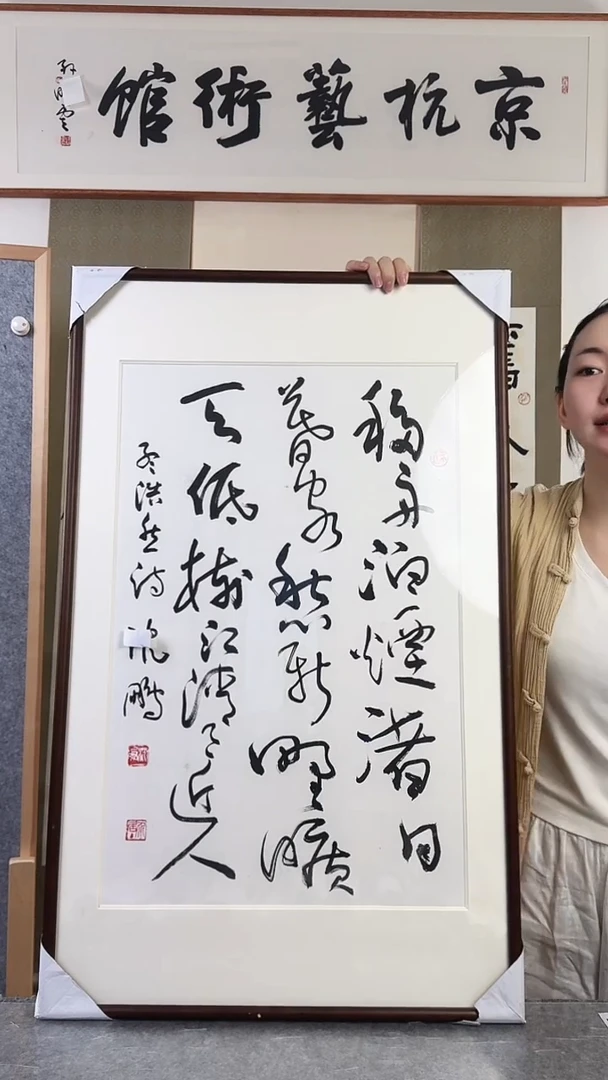 京杭藝術館
移舟泊煙渚日
暮客愁新野曠
天低樹江清月近人
孟浩然詩 沈鵬